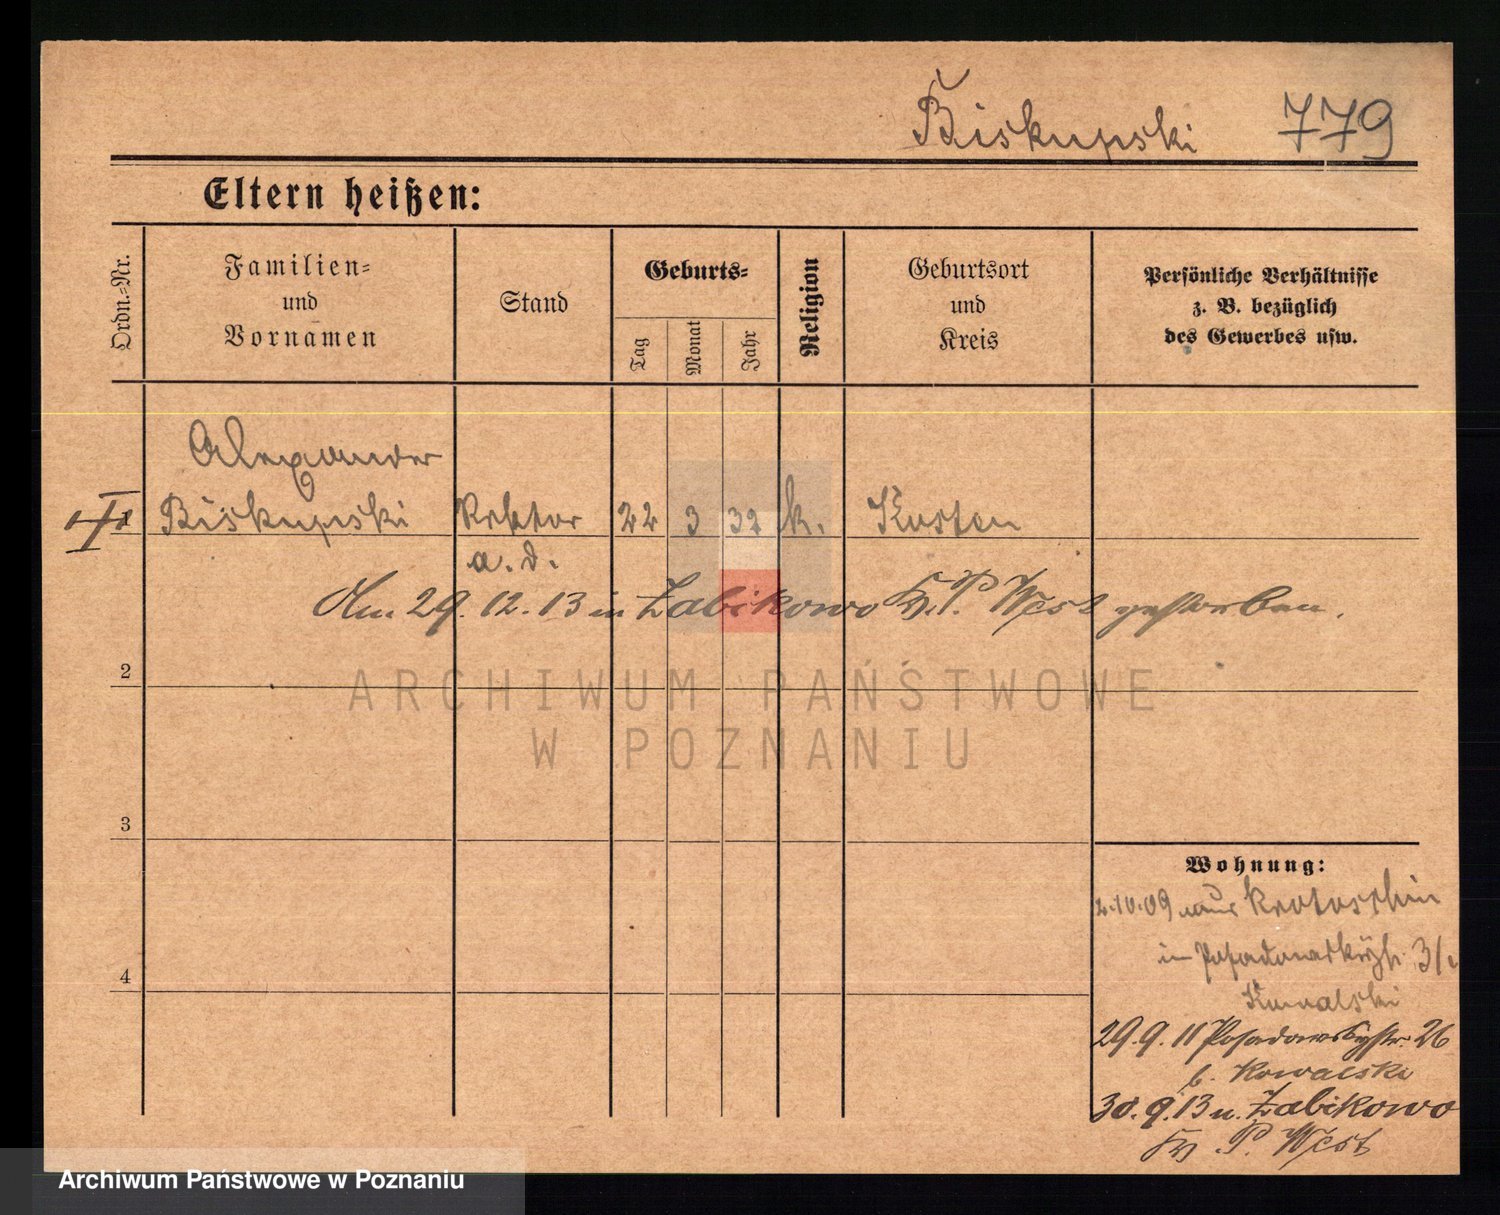 Biskupski 779
Eltern heißen:
Ordn.-Nr.
Familien-
und
Vornamen
Stand
Geburts-
Tag
Monat
Jahr
Religion
Geburtsort
und
Kreis
Persönliche Verhältnisse
z. B. bezüglich
des Gewerbes usw.
Alexander
1 Biskupski Rektor 22 3 32 k. Kosten
a. D.
Am 29.12.13 in Zabikowo Kr. P. West gestorben.
2
3
4
Wohnung:
2.10.09 aus Krotoschin
in Posadowskystr. 3/
Kowalski
29.9.11 Posadowskystr. 26
b. Kowalski
30.9.13 n. Zabikowo
Kr. P. West
ARCHIWUM PAŃSTWOWE
W POZNANIU
Archiwum Państwowe w Poznaniu